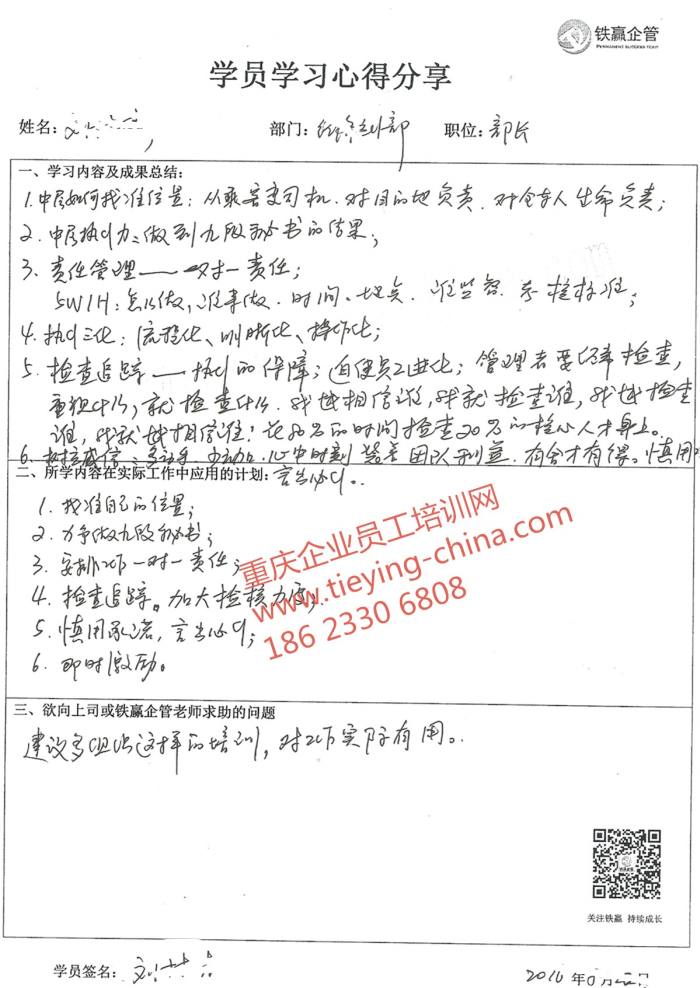 铁赢企管
PERMANENT SUCCESS TEAM
学员学习心得分享
姓名:
部门: 部 职位: 部长
一、学习内容及成果总结:
1. 中层如何找准位置: 从乘客变司机. 对目的地负责. 对全车人生命负责;
2. 中层执行力: 做到九段秘书的结果;
3. 责任管理——一对一责任;
5W1H: 怎么做, 谁来做. 时间. 地点. 谁监督. 考核标准;
4. 执行三化: 流程化、明晰化、操作化;
5. 检查追踪——执行的保障; 促使员工进化; 管理者要经常检查,
重视什么, 就检查什么. 我越相信谁, 我就检查谁, 我越检查
谁, 我就越相信谁! 花80%的时间检查20%的核心人才身上。
6. 心中时刻装着团队利益. 有舍才有得。慎用
二、所学内容在实际工作中应用的计划: 言出必行。
1. 找准自己的位置;
2. 力争做九段秘书;
3. 安排工作一对一责任;
4. 检查追踪。加大检核力度;
5. 慎用承诺, 言出必行;
6. 即时激励。
重庆企业员工培训网
www.tieying-china.com
186 2330 6808
三、欲向上司或铁赢企管老师求助的问题
建议多组织这样的培训, 对工作实际有用。
关注铁赢 持续成长
学员签名: 刘
2016 年 月